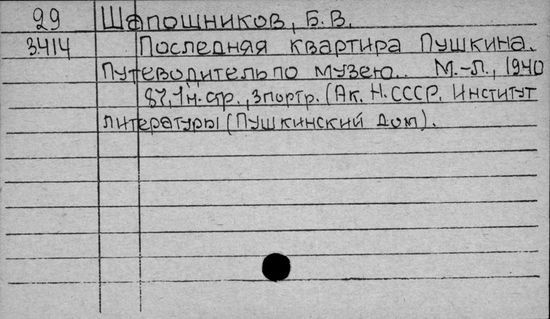 29 Шапошников, Б. В.
3414 Последняя квартира Пушкина.
Путеводитель по музею. М.-Л., 1940
87, 1 н. стр., 3 портр. (Ак. Н. СССР. Институт
литературы (Пушкинский дом).